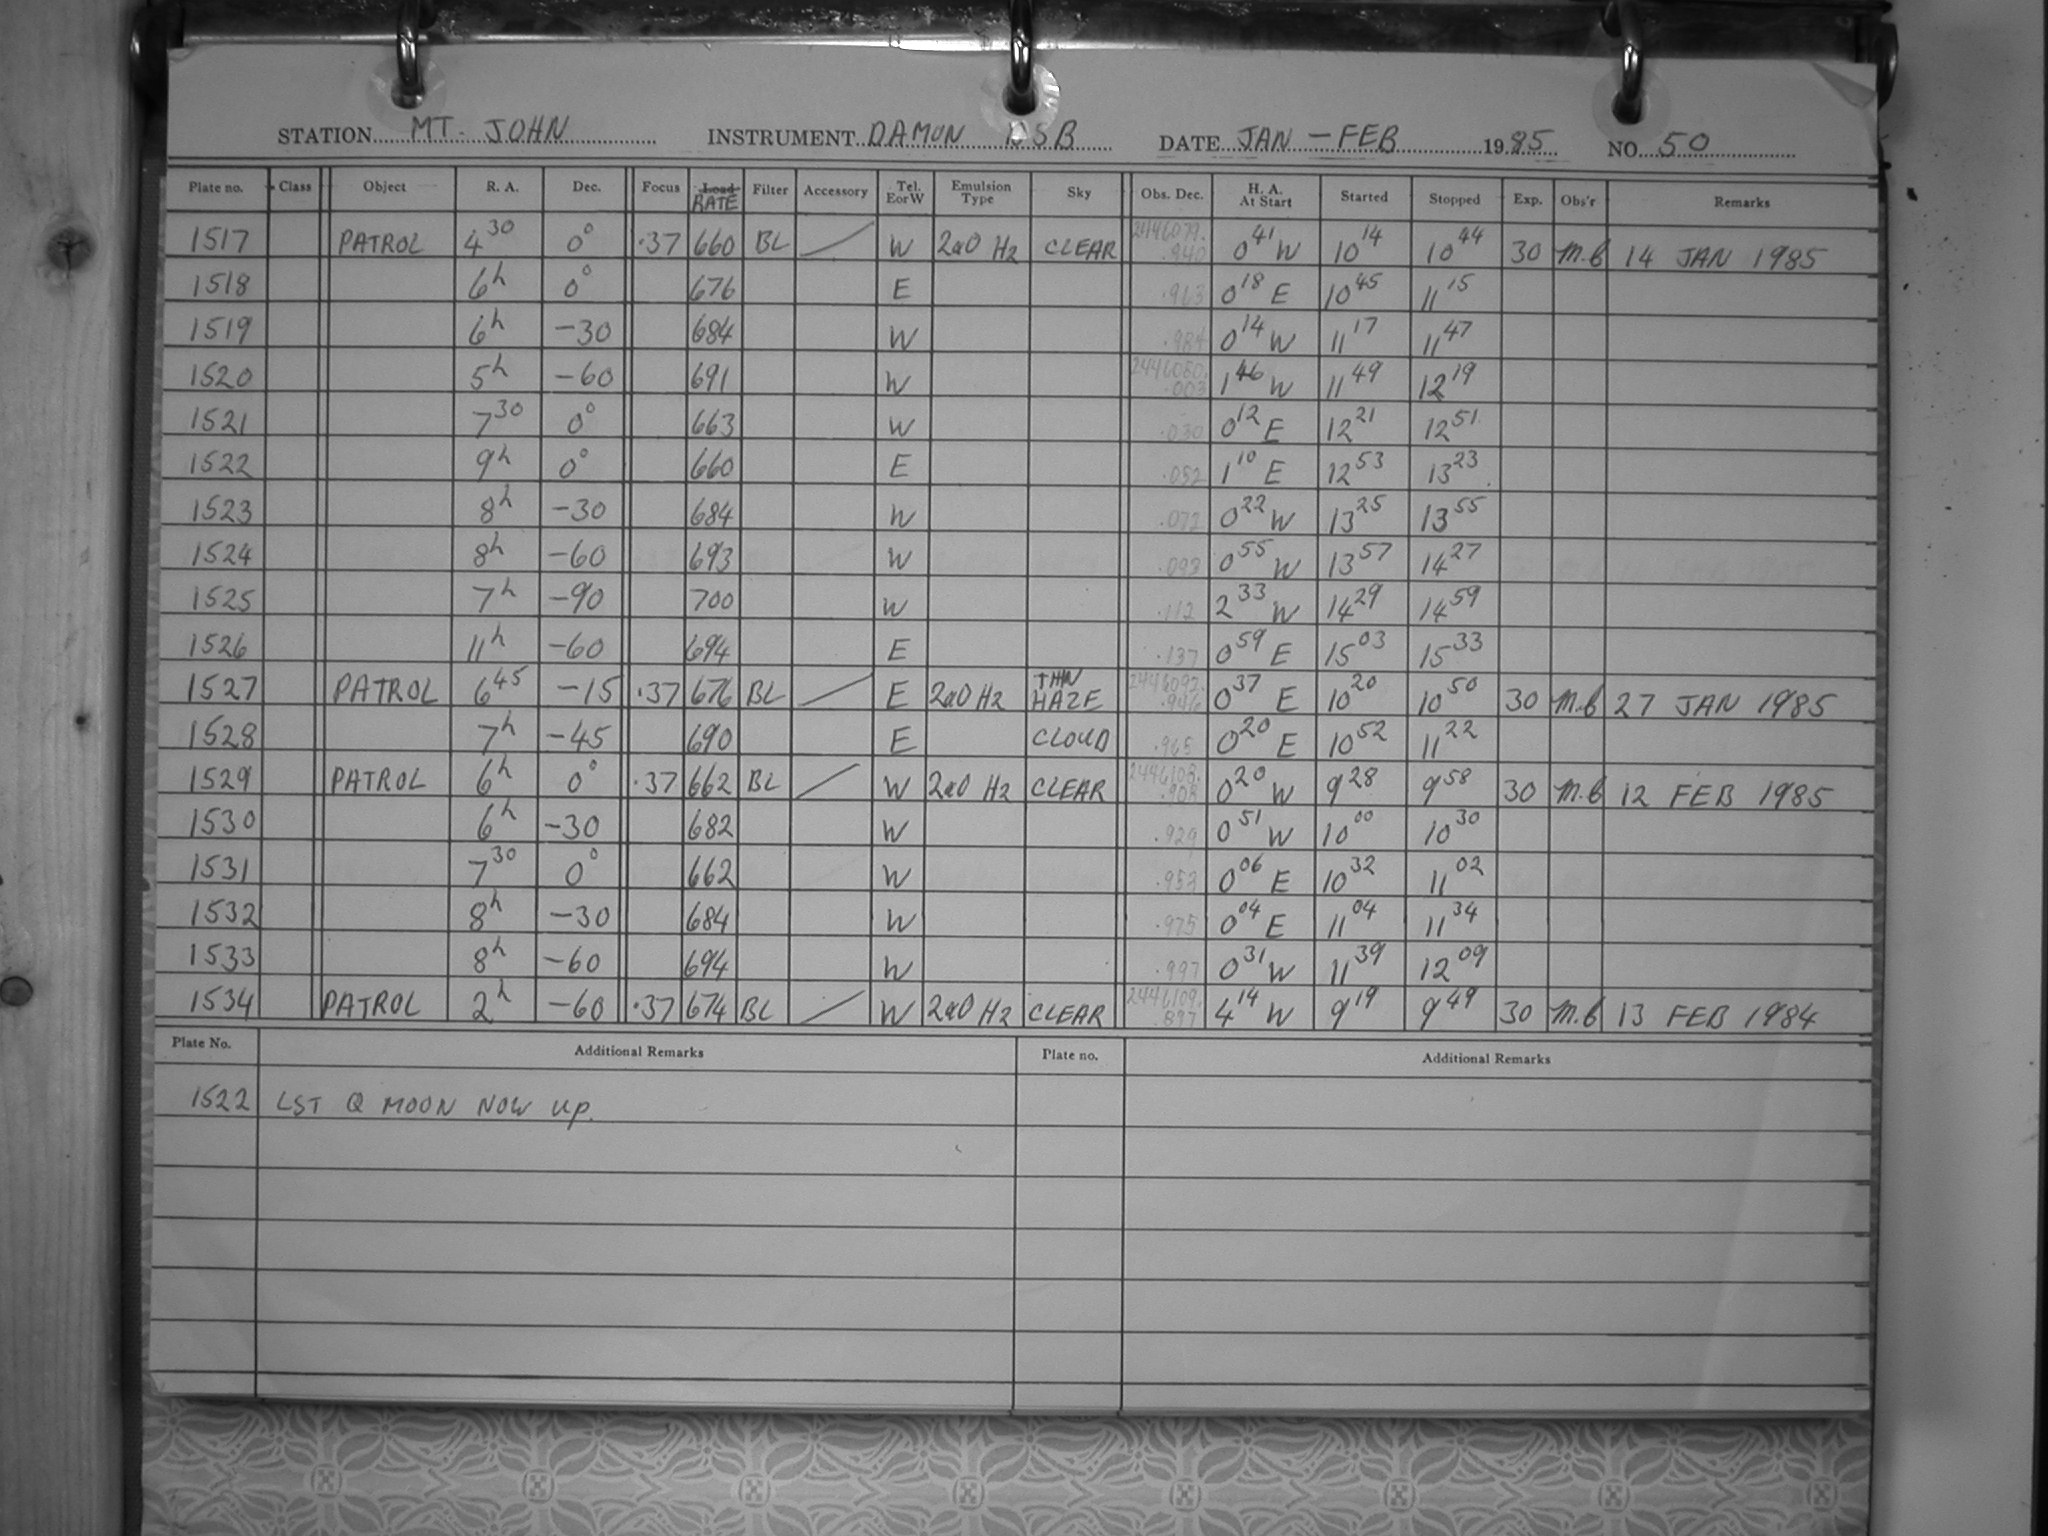 STATION MT. JOHN INSTRUMENT DAMON DSB DATE JAN - FEB 1985 NO 50
Plate no. Class Object R. A. Dec. Focus Load RATE Filter Accessory Tel. E or W Emulsion Type Sky Obs. Dec. H. A. At Start Started Stopped Exp. Obs'r Remarks
1517 PATROL 4 30 0° .37 660 BL W 2a0 H2 CLEAR 2446079. .940 0 41 W 10 14 10 44 30 M.B 14 JAN 1985
1518 6h 0° 676 E .963 0 18 E 10 45 11 15
1519 6h -30 684 W .984 0 14 W 11 17 11 47
1520 5h -60 691 W 2446080. .003 1 46 W 11 49 12 19
1521 7 30 0° 663 W .030 0 12 E 12 21 12 51
1522 9h 0° 660 E .052 1 10 E 12 53 13 23
1523 8h -30 684 W .072 0 22 W 13 25 13 55
1524 8h -60 693 W .093 0 55 W 13 57 14 27
1525 7h -90 700 W .112 2 33 W 14 29 14 59
1526 11h -60 694 E .137 0 59 E 15 03 15 33
1527 PATROL 6 45 -15 .37 676 BL E 2a0 H2 THIN HAZE 2446092. .946 0 37 E 10 20 10 50 30 M.B 27 JAN 1985
1528 7h -45 690 E CLOUD .965 0 20 E 10 52 11 22
1529 PATROL 6h 0° .37 662 BL W 2a0 H2 CLEAR 2446108. .908 0 20 W 9 28 9 58 30 M.B 12 FEB 1985
1530 6h -30 682 W .929 0 51 W 10 00 10 30
1531 7 30 0° 662 W .953 0 06 E 10 32 11 02
1532 8h -30 684 W .975 0 04 E 11 04 11 34
1533 8h -60 694 W .997 0 31 W 11 39 12 09
1534 PATROL 2h -60 .37 674 BL W 2a0 H2 CLEAR 2446109. .897 4 14 W 9 19 9 49 30 M.B 13 FEB 1984
Plate No. Additional Remarks Plate no. Additional Remarks
1522 LST Q MOON NOW UP.